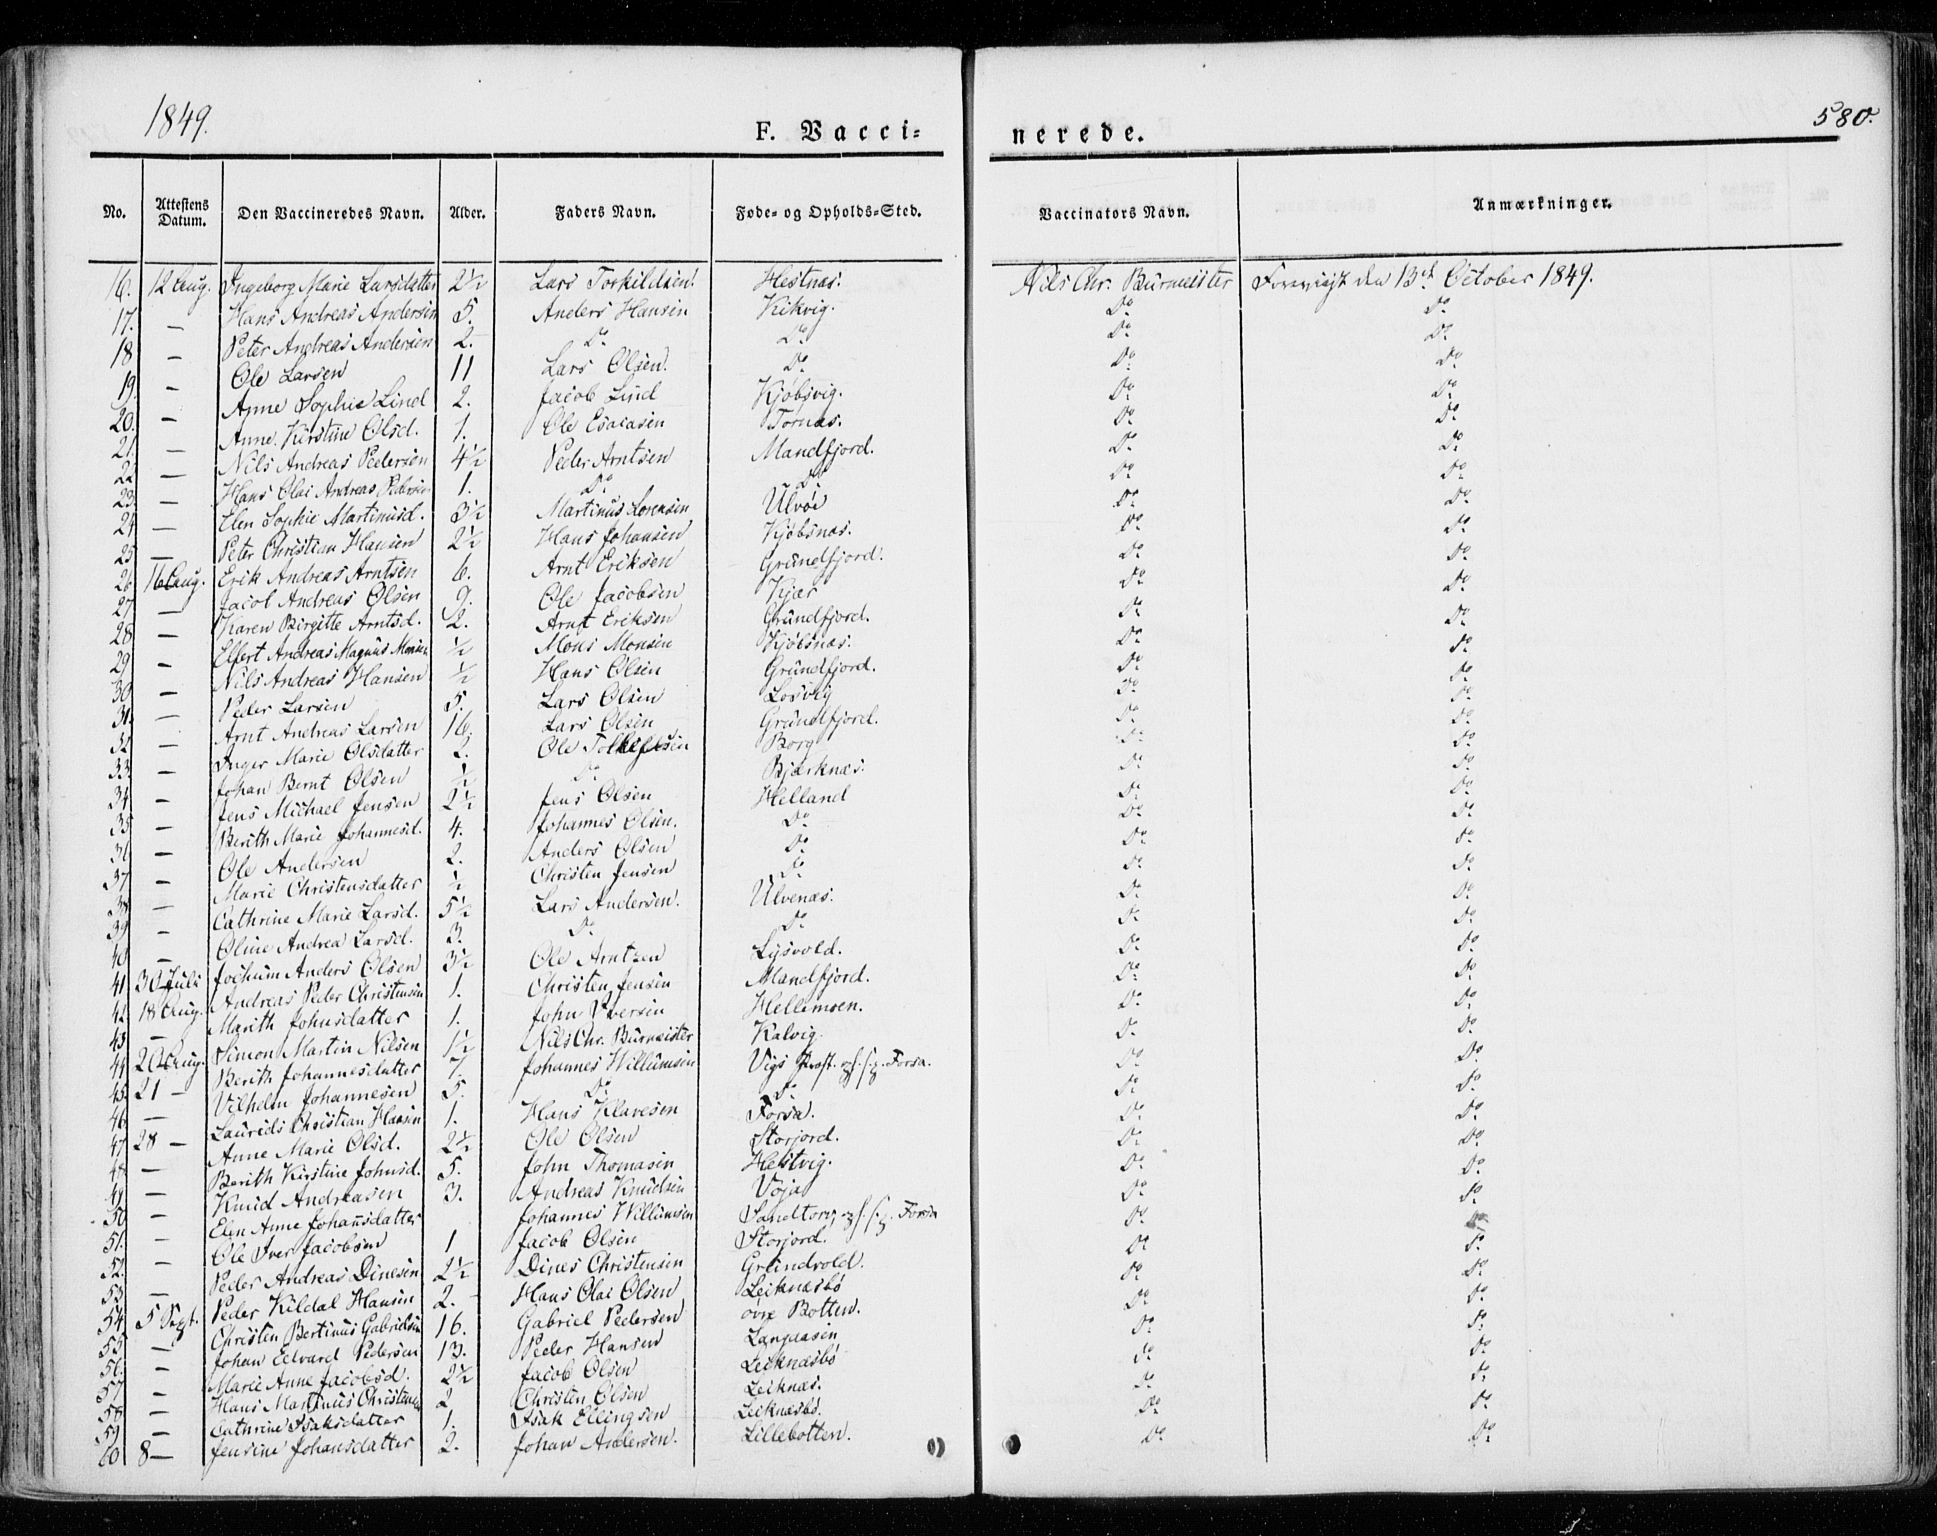 1849.
580.
F. Vacci=
nerede.
No. Attestens Datum. Den Vaccineredes Navn. Alder. Faders Navn. Føde- og Opholds-Sted. Vaccinators Navn. Anmærkninger.
16. 12 Aug. Ingeborg Marie Larsdatter 2½ Lars Torkildsen. Hestnæs. Nils Chr. Burmeister Foreviist den 13de October 1849.
17. — Hans Andreas Andersen 5. Anders Hansen Kikvig. Do Do
18 — Peter Andreas Andersen 2. Do Do Do Do
19. — Ole Larsen 11 Lars Olsen. Do Do Do
20. — Anne Sophie Lind 2. Jacob Lind Kjøbsvig. Do Do
21. — Anne Kirstine Olsd. 1. Ole Esaiasen Tornæs. Do Do
22 — Nils Andreas Pedersen 4½ Peder Arntsen Mandfjord. Do Do
23. — Hans Olai Andreas Pedersen 1. Do Do Do Do
24. — Elen Sophie Martinusd. 3½ Martinus Lorensen Ulvøe Do Do
25. — Peter Christian Hansen 2½ Hans Johansen Kjøbsnæs. Do Do
26 16 Aug. Erik Andreas Arntsen 6. Arnt Eriksen Grundfjord. Do Do
27. — Jacob Andreas Olsen 9. Ole Jacobsen Kjær Do Do
28 — Karen Birgitte Arntsd. 2. Arnt Eriksen Grundfjord. Do Do
29 — Elfert Andreas Magnus Monsen ½ Mons Monsen Kjøbsnæs. Do Do
30 — Nils Andreas Hansen ½ Hans Olsen Grundfjord. Do Do
31. — Peder Larsen 5. Lars Olsen Losvig Do Do
32 — Arnt Andreas Larsen 16. Lars Olsen Grundfjord. Do Do
33. — Inger Marie Olsdatter 2. Ole Borg Do Do
34 — Johan Bernt Olsen ½ Do Bjærknæs. Do Do
35 — Jens Michael Jensen 2½ Jens Olsen Helland Do Do
36 — Berith Marie Johannesd. 4. Johannes Olsen. Do Do Do
37 — Ole Andersen 2. Anders Olsen Do Do Do
38 — Marie Christensdatter ½ Christen Jensen Do Do Do
39 — Cathrine Marie Larsd. 5½ Lars Andersen. Ulvenæs. Do Do
40 — Oline Andrea Larsd. 3. Do Do Do Do
41 30 Juli Jochum Anders Olsen 3½ Ole Arntzen Lysvold. Do Do
42 18 Aug. Andreas Peder Christensen 1. Christen Jensen Mandfjord. Do Do
43. — Marith Johnsdatter 1. John Iversen Hellemoen. Do Do
44 20 Aug. Simon Martin Nilsen 1½ Nils Chr. Burmeister Kalvig. Do Do
45 21 — Berith Johannesdatter 7. Johannes Willumsen Vigs Forsa. Do Do
46 — Vilhelm Johannesen 5. Do Do Do Do
47 28 — Laurids Christian Hansen 1. Hans Klavesen Forsa. Do Do
48 — Anne Marie Olsd. 2½ Ole Olsen Storjord. Do Do
49 — Berith Kirstine Johnsd. 5. John Thomasen Hestvig. Do Do
50 — Knud Andreasen 3. Andreas Knudsen Voja Do Do
51. — Elen Anne Johansdatter Johannes Willumsen Sandtorv Forsa Do Do
52. — Ole Iver Jacobsen 1 Jacob Olsen Storjord. Do Do
53. — Peder Andreas Dinesen 2½ Dines Christensen Grundvold. Do Do
54 5 Sept. Peder Kildal Hansen 2. Hans Olai Olsen Leiknæsbø Do Do
55 — Christen Bertinus Gabrielsen 16. Gabriel Pedersen øvre Botten. Do Do
56. — Johan Edvard Pedersen 13. Peder Hansen Langaasen Do Do
57. — Marie Anne Jacobsd. 2½ Jacob Olsen Leiknæsbø Do Do
58 — Hans Martinus Christensen 2 Christen Olsen Leiknæs. Do Do
59 — Cathrine Isaksdatter 1. Isak Ellingsen Leiknæsbø. Do Do
60 8 — Jensine Johansdatter 2. Johan Andersen. Lillebotten. Do Do